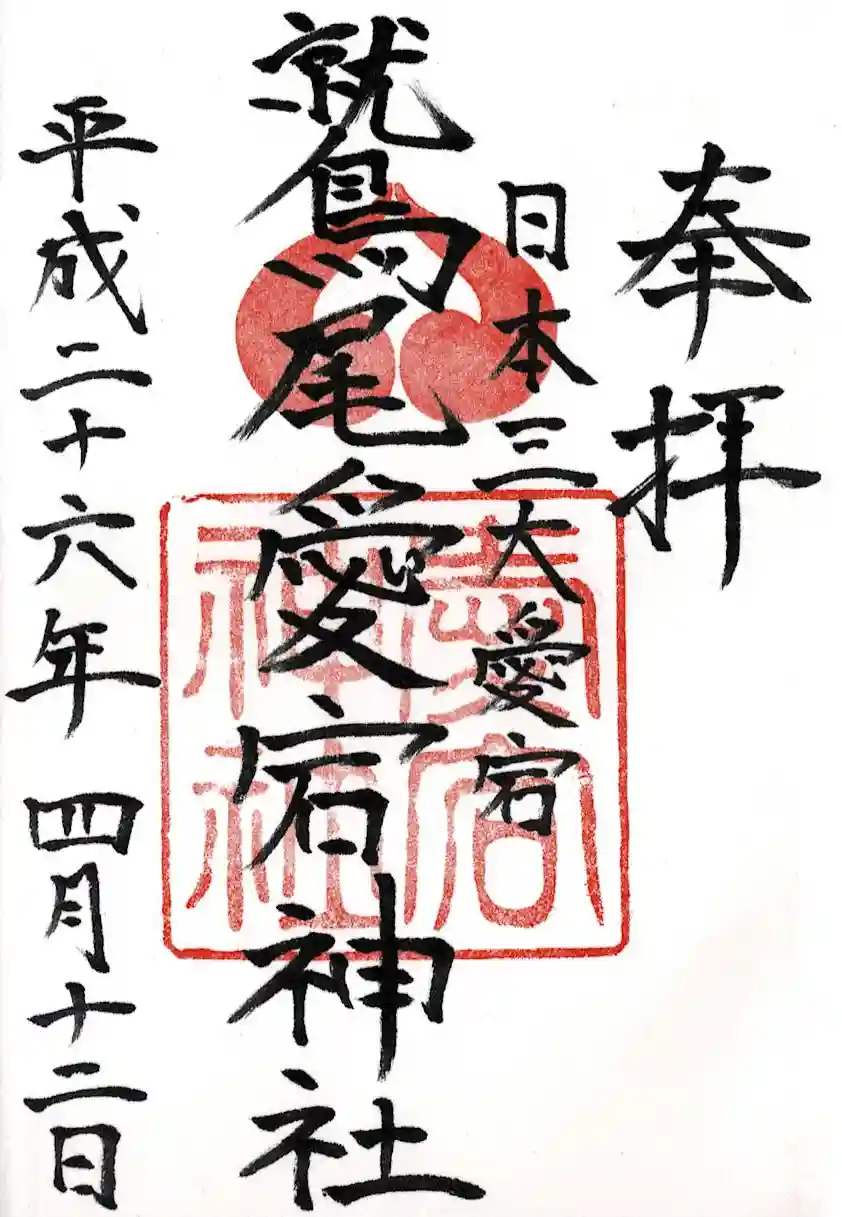 奉拝
日本三大愛宕
鷲尾愛宕神社
愛宕神社
平成二十六年 四月十二日